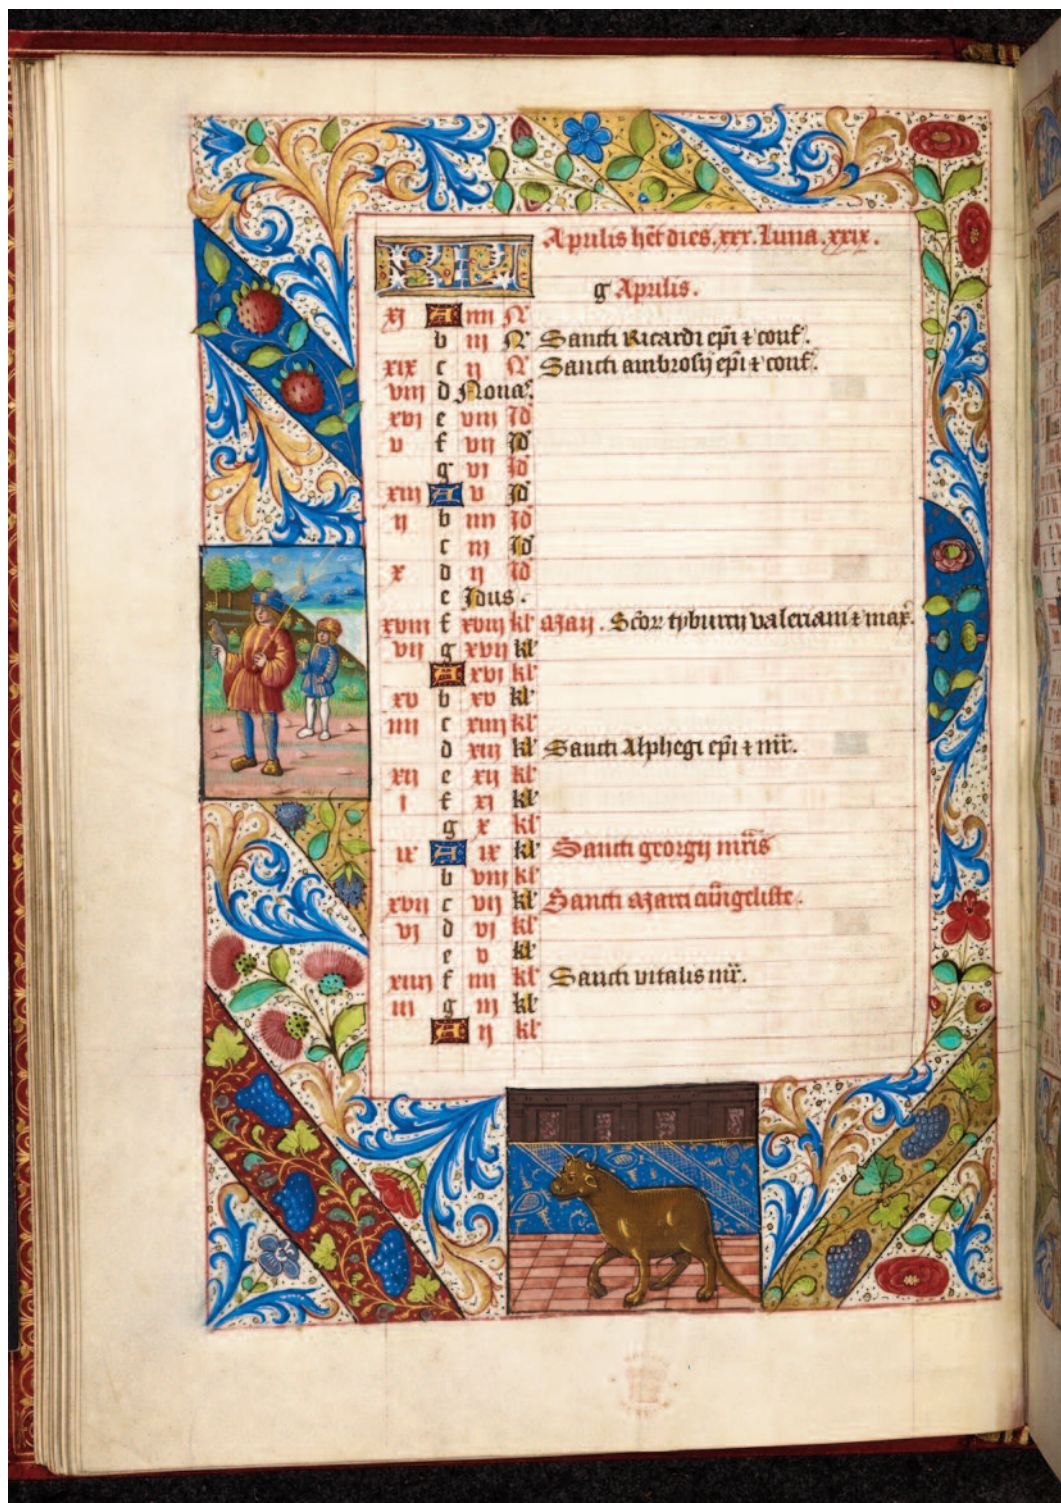 Aprilis hēt dies .xxx. Luna .xxix.
KL g Aprilis.
xj A iiij N
b iij N Sancti Ricardi ep̄i ⁊ conf.
xix c ij N Sancti ambrosij ep̄i ⁊ conf.
viij d Nonas.
xvj e viij Id
v f vij Id
g vj Id
xiij A v Id
ij b iiij Id
c iij Id
x d ij Id
e Idus.
xviij f xviij kl' Maij. Sc̄oꝝ tyburcij valeriani ⁊ max.
vij g xvij kl'
A xvj kl'
xv b xv kl'
iiij c xiiij kl'
d xiij kl' Sancti Alphegi ep̄i ⁊ mr̄.
xij e xij kl'
i f xj kl'
g x kl'
ix A ix kl' Sancti georgij mr̄is
b viij kl'
xvij c vij kl' Sancti Marci eūngeliste.
vj d vj kl'
e v kl'
xiiij f iiij kl' Sancti vitalis mr̄.
iij g iij kl'
A ij kl'